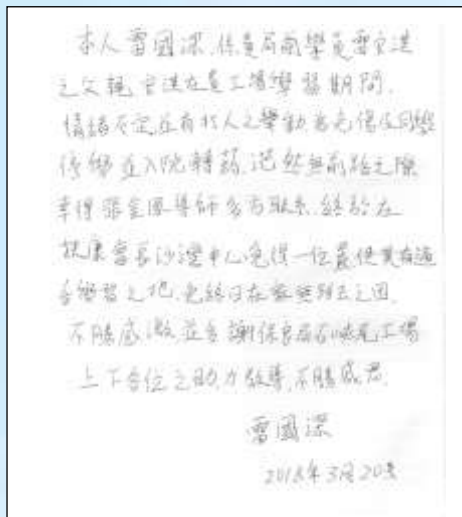 本人雷國深,係貴局前學員雷宏進
之父親,宏進在貴工場學習期間,
情緒不定,並有打人之舉動,為免傷及同學
停學並入院轉藥,茫然無前路之際
幸得張金鳳導師多方聯系,終於在
扶康會長沙灣中心覓得一位置使其有適
合學習之地,免終日在家無所去之困,
不勝感激,並多謝保良局
工場
上下各位之助力教導,不勝感恩,
雷國深
2018年3月20號